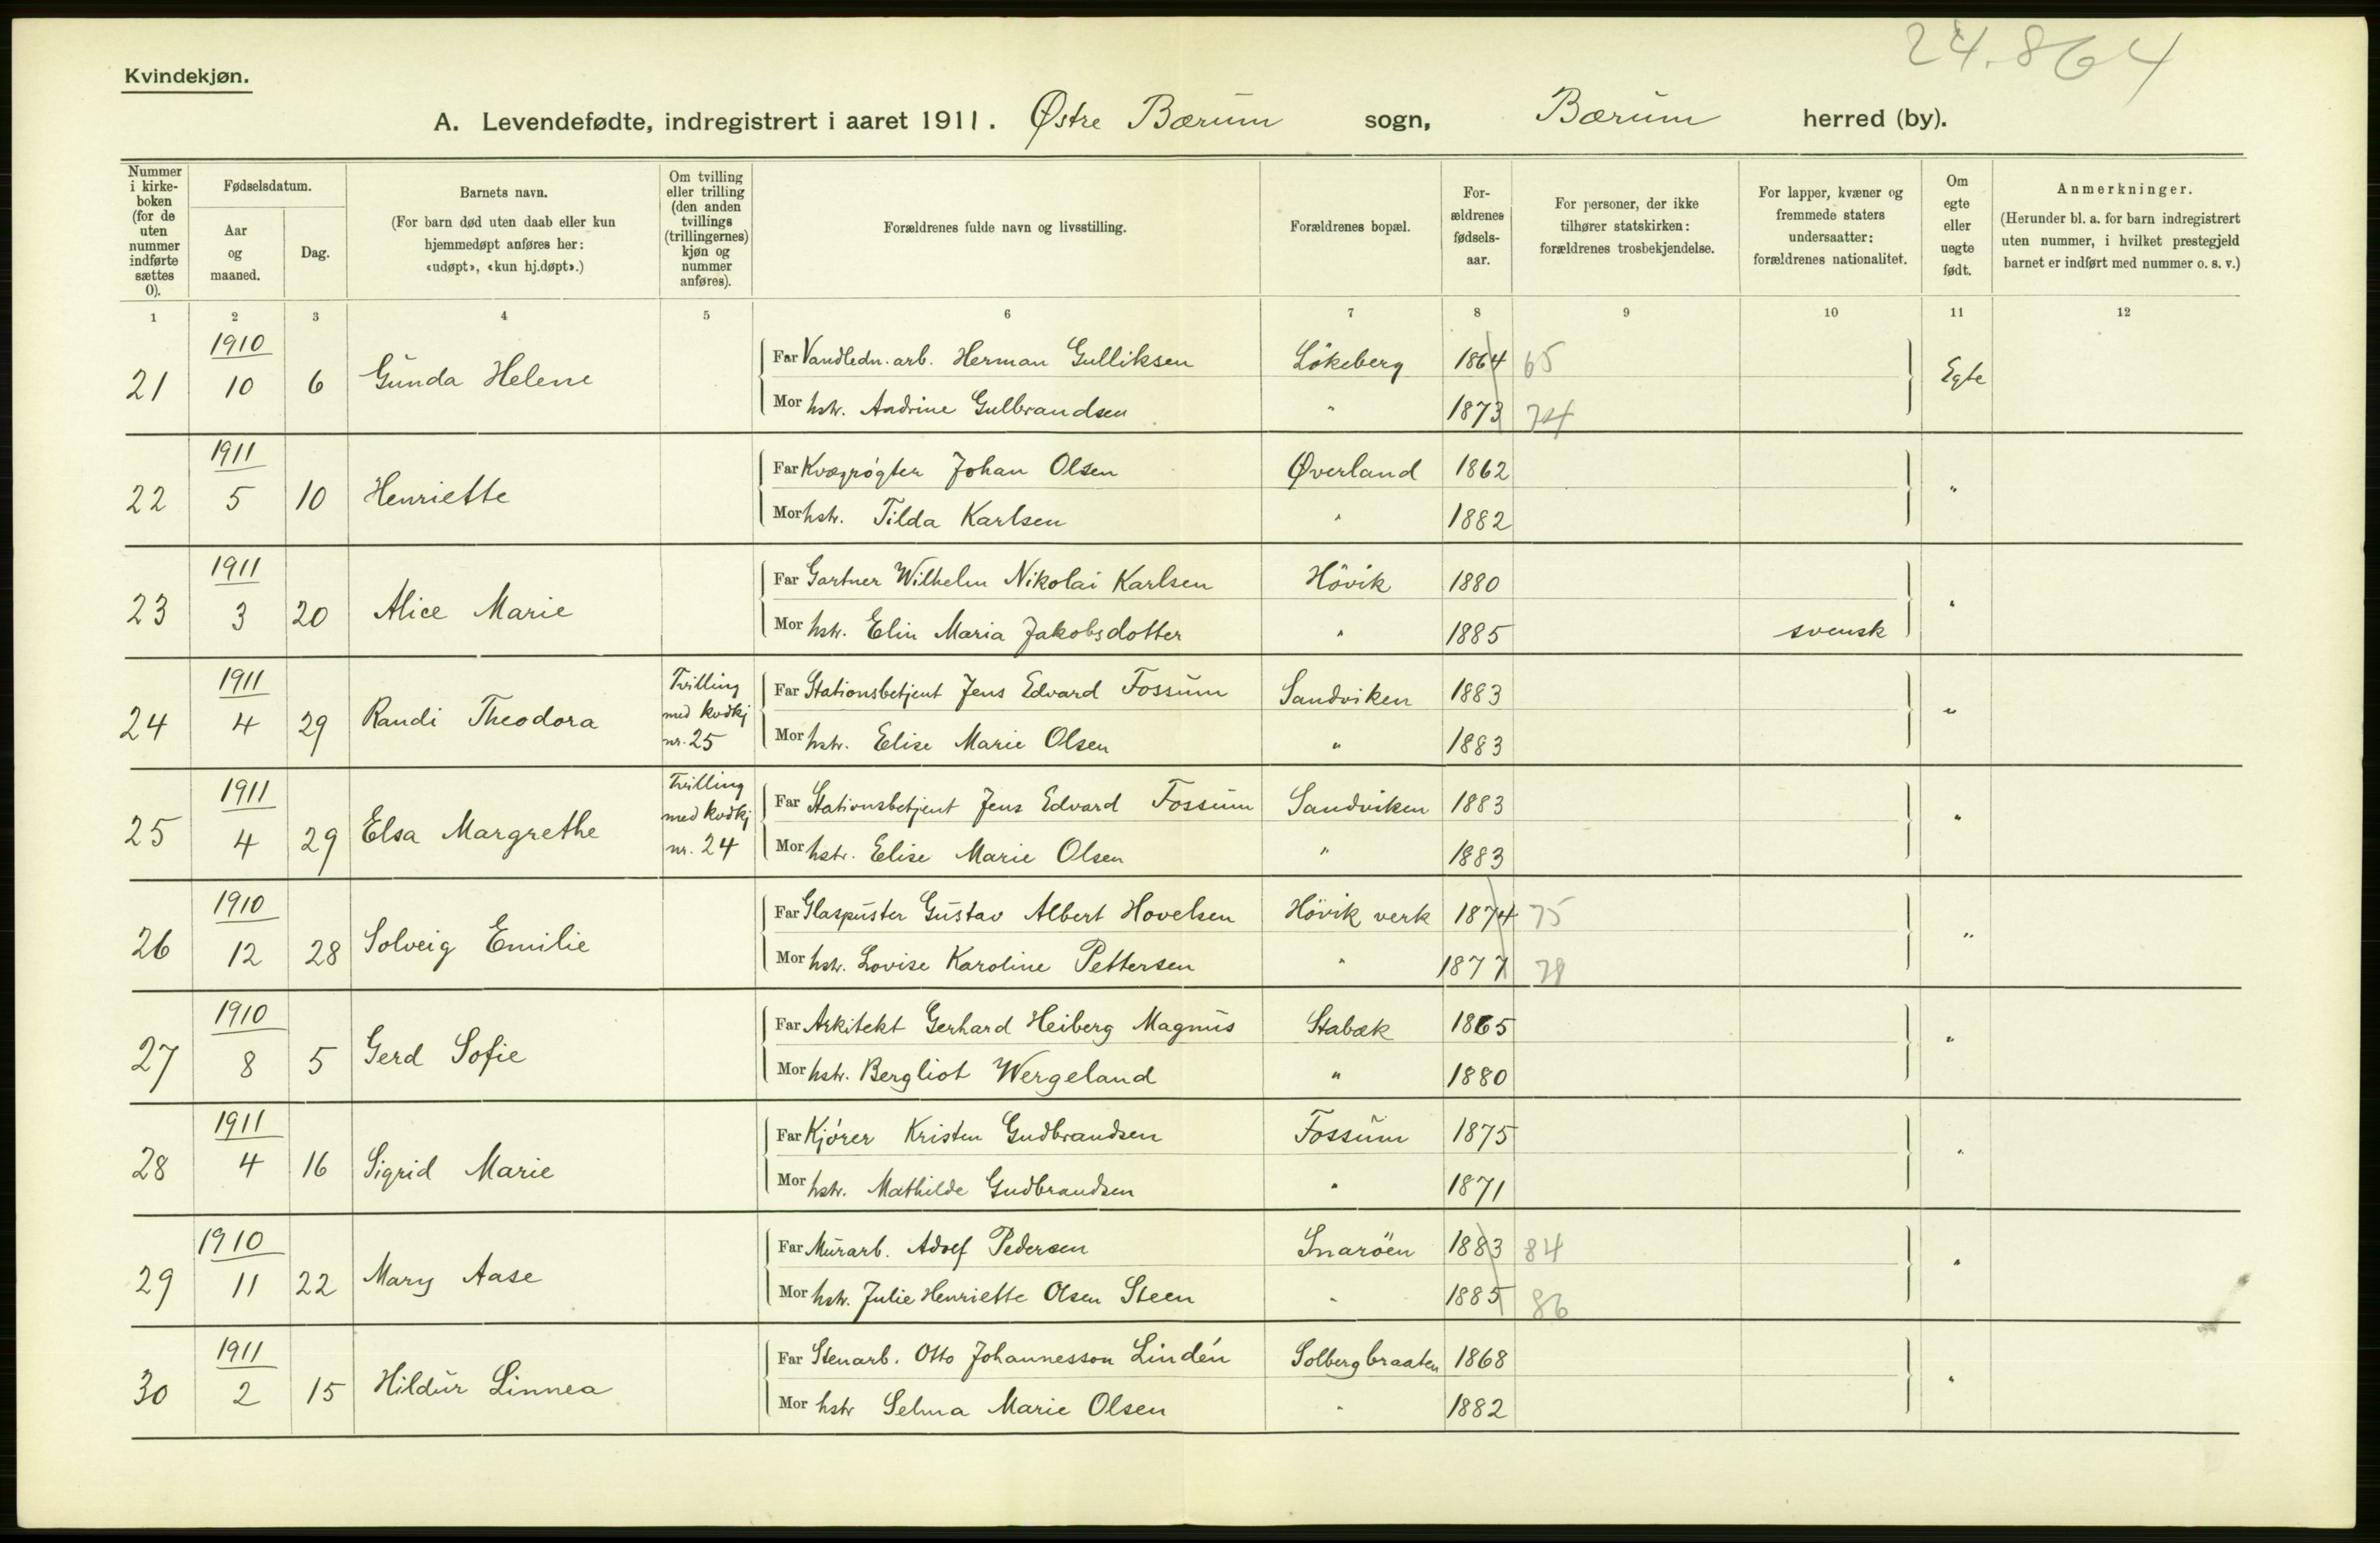 24.864
Kvindekjøn.
A. Levendefødte, indregistrert i aaret 1911. Østre Bærum sogn, Bærum herred (by).
Nummer i kirke-boken (for de uten nummer indførte sættes 0).
Fødselsdatum.
Aar og maaned.
Dag.
Barnets navn.
(For barn død uten daab eller kun hjemmedøpt anføres her: «udøpt», «kun hj.døpt».)
Om tvilling eller trilling (den anden tvillings (trillingernes) kjøn og nummer anføres).
Forældrenes fulde navn og livsstilling.
Forældrenes bopæl.
For-ældrenes fødsels-aar.
For personer, der ikke tilhører statskirken: forældrenes trosbekjendelse.
For lapper, kvæner og fremmede staters undersaatter: forældrenes nationalitet.
Om egte eller uegte født.
Anmerkninger.
(Herunder bl. a. for barn indregistrert uten nummer, i hvilket prestegjeld barnet er indført med nummer o. s. v.)
1 2 3 4 5 6 7 8 9 10 11 12
1910
21 10 6 Gunda Helene
Far Vandledn. arb. Herman Gulliksen Lökeberg 1864 65 Egte
Mor hstr. Andrine Gulbrandsen " 1873 74
1911
22 5 10 Henriette
Far Kvægrøgter Johan Olsen Øverland 1862 "
Mor hstr. Tilda Karlsen " 1882
1911
23 3 20 Alice Marie
Far Gartner Wilhelm Nikolai Karlsen Hövik 1880 "
Mor hstr. Elin Maria Jakobsdotter " 1885 svensk
1911
24 4 29 Randi Theodora
Tvilling med kvdkj nr. 25
Far Stationsbetjent Jens Edvard Fossum Sandviken 1883 "
Mor hstr. Elise Marie Olsen " 1883
1911
25 4 29 Elsa Margrethe
Tvilling med kvdkj nr. 24
Far Stationsbetjent Jens Edvard Fossum Sandviken 1883 "
Mor hstr. Elise Marie Olsen " 1883
1910
26 12 28 Solveig Emilie
Far Glaspuster Gustav Albert Hovelsen Hövik verk 1874 75 "
Mor hstr. Lovise Karoline Pettersen " 1877 78
1910
27 8 5 Gerd Sofie
Far Arkitekt Gerhard Heiberg Magnus Stabæk 1865 "
Mor hstr. Bergliot Wergeland " 1880
1911
28 4 16 Sigrid Marie
Far Kjörer Kristen Gudbrandsen Fossum 1875 "
Mor hstr. Mathilde Gudbrandsen " 1871
1910
29 11 22 Mary Aase
Far Murarb. Adolf Pedersen Snaröen 1883 84 "
Mor hstr. Julie Henriette Olsen Steen " 1885 86
1911
30 2 15 Hildur Linnea
Far Stenarb. Otto Johannesson Lindén Solbergbraaten 1868 "
Mor hstr Selma Marie Olsen " 1882